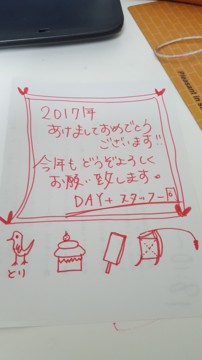 2017年
あけましておめでとう
ございます!!
今年もどうぞよろしく
お願い致します。
DAY+ スタッフー同
とり